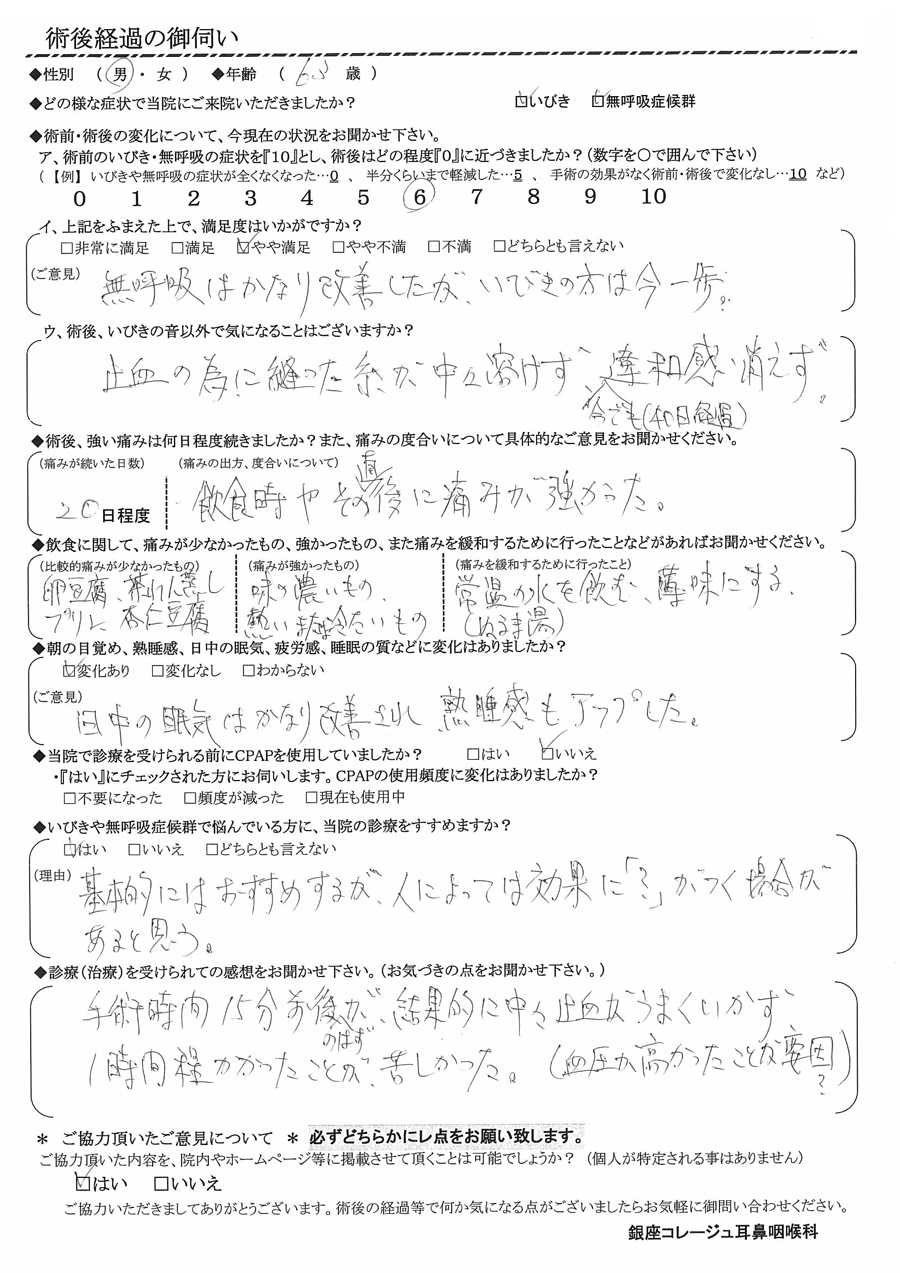 術後経過の御伺い
◆性別 (男・女) ◆年齢 (63歳)
◆どの様な症状で当院にご来院いただきましたか? ☑いびき ☑無呼吸症候群
◆術前・術後の変化について、今現在の状況をお聞かせ下さい。
ア、術前のいびき・無呼吸の症状を『10』とし、術後はどの程度『0』に近づきましたか?(数字を○で囲んで下さい)
(【例】 いびきや無呼吸の症状が全くなくなった…0 、 半分くらいまで軽減した…5 、 手術の効果がなく術前・術後で変化なし…10 など)
0 1 2 3 4 5 6 7 8 9 10
イ、上記をふまえた上で、満足度はいかがですか?
□非常に満足 □満足 ☑やや満足 □やや不満 □不満 □どちらとも言えない
(ご意見) 無呼吸はかなり改善したが、いびきの方は今一歩。
ウ、術後、いびきの音以外で気になることはございますか?
止血の為に縫った糸が中々溶けず 違和感消えず。
今でも(40日経過)
◆術後、強い痛みは何日程度続きましたか?また、痛みの度合いについて具体的なご意見をお聞かせください。
(痛みが続いた日数) (痛みの出方、度合いについて)
20日程度 飲食時やその直後に痛みが強かった。
◆飲食に関して、痛みが少なかったもの、強かったもの、また痛みを緩和するために行ったことなどがあればお聞かせください。
(比較的痛みが少なかったもの) (痛みが強かったもの) (痛みを緩和するために行ったこと)
卵豆腐、茶わん蒸し 味の濃いもの、 常温の水を飲む、薄味にする、
プリン、杏仁豆腐 熱い 冷たいもの (ぬるま湯)
◆朝の目覚め、熟睡感、日中の眠気、疲労感、睡眠の質などに変化はありましたか?
☑変化あり □変化なし □わからない
(ご意見)
日中の眠気はかなり改善され 熟睡感もアップした。
◆当院で診療を受けられる前にCPAPを使用していましたか? □はい ☑いいえ
・『はい』にチェックされた方にお伺いします。CPAPの使用頻度に変化はありましたか?
□不要になった □頻度が減った □現在も使用中
◆いびきや無呼吸症候群で悩んでいる方に、当院の診療をすすめますか?
☑はい □いいえ □どちらとも言えない
(理由) 基本的にはおすすめするが、人によっては効果に「?」がつく場合が
あると思う。
◆診療(治療)を受けられての感想をお聞かせ下さい。(お気づきの点をお聞かせ下さい。)
手術時間15分前後のはずが、結果的に中々止血がうまくいかず
1時間程かかったことが、苦しかった。(血圧が高かったことが要因?)
* ご協力頂いたご意見について * 必ずどちらかにレ点をお願い致します。
ご協力頂いた内容を、院内やホームページ等に掲載させて頂くことは可能でしょうか? (個人が特定される事はありません)
☑はい □いいえ
ご協力いただきましてありがとうございます。術後の経過等で何か気になる点がございましたらお気軽に御問い合わせください。
銀座コレージュ耳鼻咽喉科